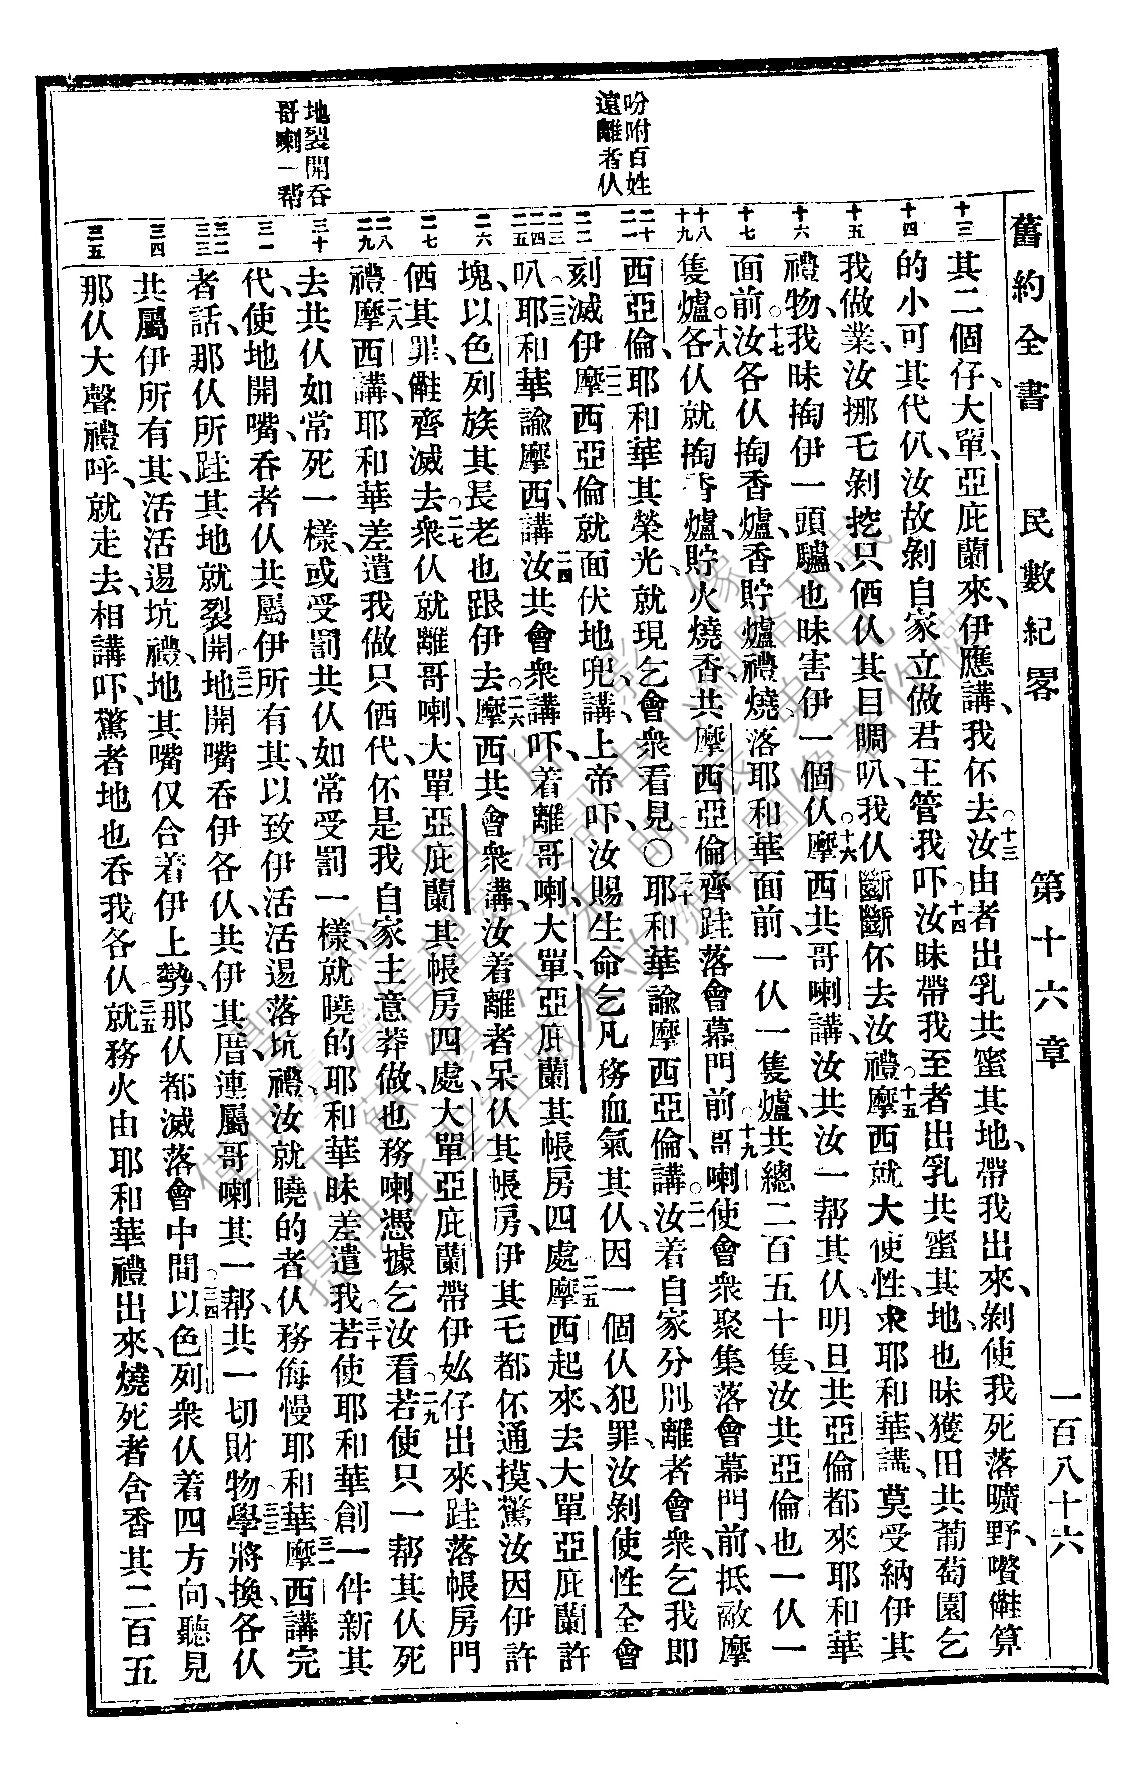 舊約全書 民數紀畧 第十六章 一百八十六
吩咐百姓
遠離者仈
地裂開吞
哥喇一幫
十三
十四
十五
十六
十七
十八
十九
二十
二一
二二
二三
二四
二五
二六
二七
二八
二九
三十
三一
三二
三三
三四
三五
其二個仔、大單、亞庇蘭來、伊應講、我伓去、○十三汝由者出乳共蜜其地、帶我出來、剝使我死落曠野、嚽㒰算
的小可其代仈、汝故剝自家立做君王管我吓、○十四汝昧帶我至者出乳共蜜其地、也昧獲田共葡萄園乞
我做業、汝挪乇剝挖只倆仈其目睭叭、我仈斷斷伓去汝禮、○十五摩西就大使性、求耶和華講、莫受納伊其
禮物、我昧掏伊一頭驢、也昧害伊一個仈、○十六摩西共哥喇講、汝共汝一幫其仈、明旦共亞倫都來耶和華
面前、○十七汝各仈掏香爐、香貯爐禮、燒落耶和華面前、一仈一隻爐、共總二百五十隻、汝共亞倫也一仈一
隻爐、○十八各仈就掏香爐、貯火燒香、共摩西亞倫齊跬落會幕門前、○十九哥喇使會衆聚集落會幕門前、抵敵摩
西亞倫、耶和華其榮光就現乞會衆看見、○二十耶和華諭摩西亞倫講、○二一汝着自家分別離者會衆、乞我即
刻滅伊、○二二摩西亞倫就面伏地兜講、上帝吓、汝賜生命乞凡務血氣其仈、因一個仈犯罪、汝剝使性全會
叭、○二三耶和華諭摩西講、○二四汝共會衆講吓、着離哥喇、大單亞庇蘭其帳房四處、○二五摩西起來、去大單亞庇蘭許
塊、以色列族其長老也跟伊去、○二六摩西共會衆講、汝着離者呆仈其帳房、伊其乇都伓通摸、驚汝因伊許
倆其罪、㒰齊滅去、○二七衆仈就離哥喇、大單亞庇蘭其帳房四處、大單亞庇蘭帶伊妐仔出來、跬落帳房門
禮、○二八摩西講、耶和華差遣我做只倆代、伓是我自家主意莽做、也務喇憑據乞汝看、○二九若使只一幫其仈死
去、共仈如常死一樣、或受罰共仈如常受罰一樣、就曉的耶和華昧差遣我、○三十若使耶和華創一件新其
代、使地開嘴吞者仈、共屬伊所有其、以致伊活活逿落坑禮、汝就曉的者仈務侮慢耶和華、○三一摩西講完
者話、那仈所跬其地就裂開、○三二地開嘴吞伊各仈、共伊其厝、連屬哥喇其一幫、共一切財物、○三三學將換各仈
共屬伊所有其、活活逿坑禮、地其嘴仅合着伊上勢、那仈都滅落會中間、○三四以色列衆仈着四方向、聽見
那仈大聲禮呼、就走去、相講吓、驚者地也吞我各仈、○三五就務火由耶和華禮出來、燒死者含香其二百五